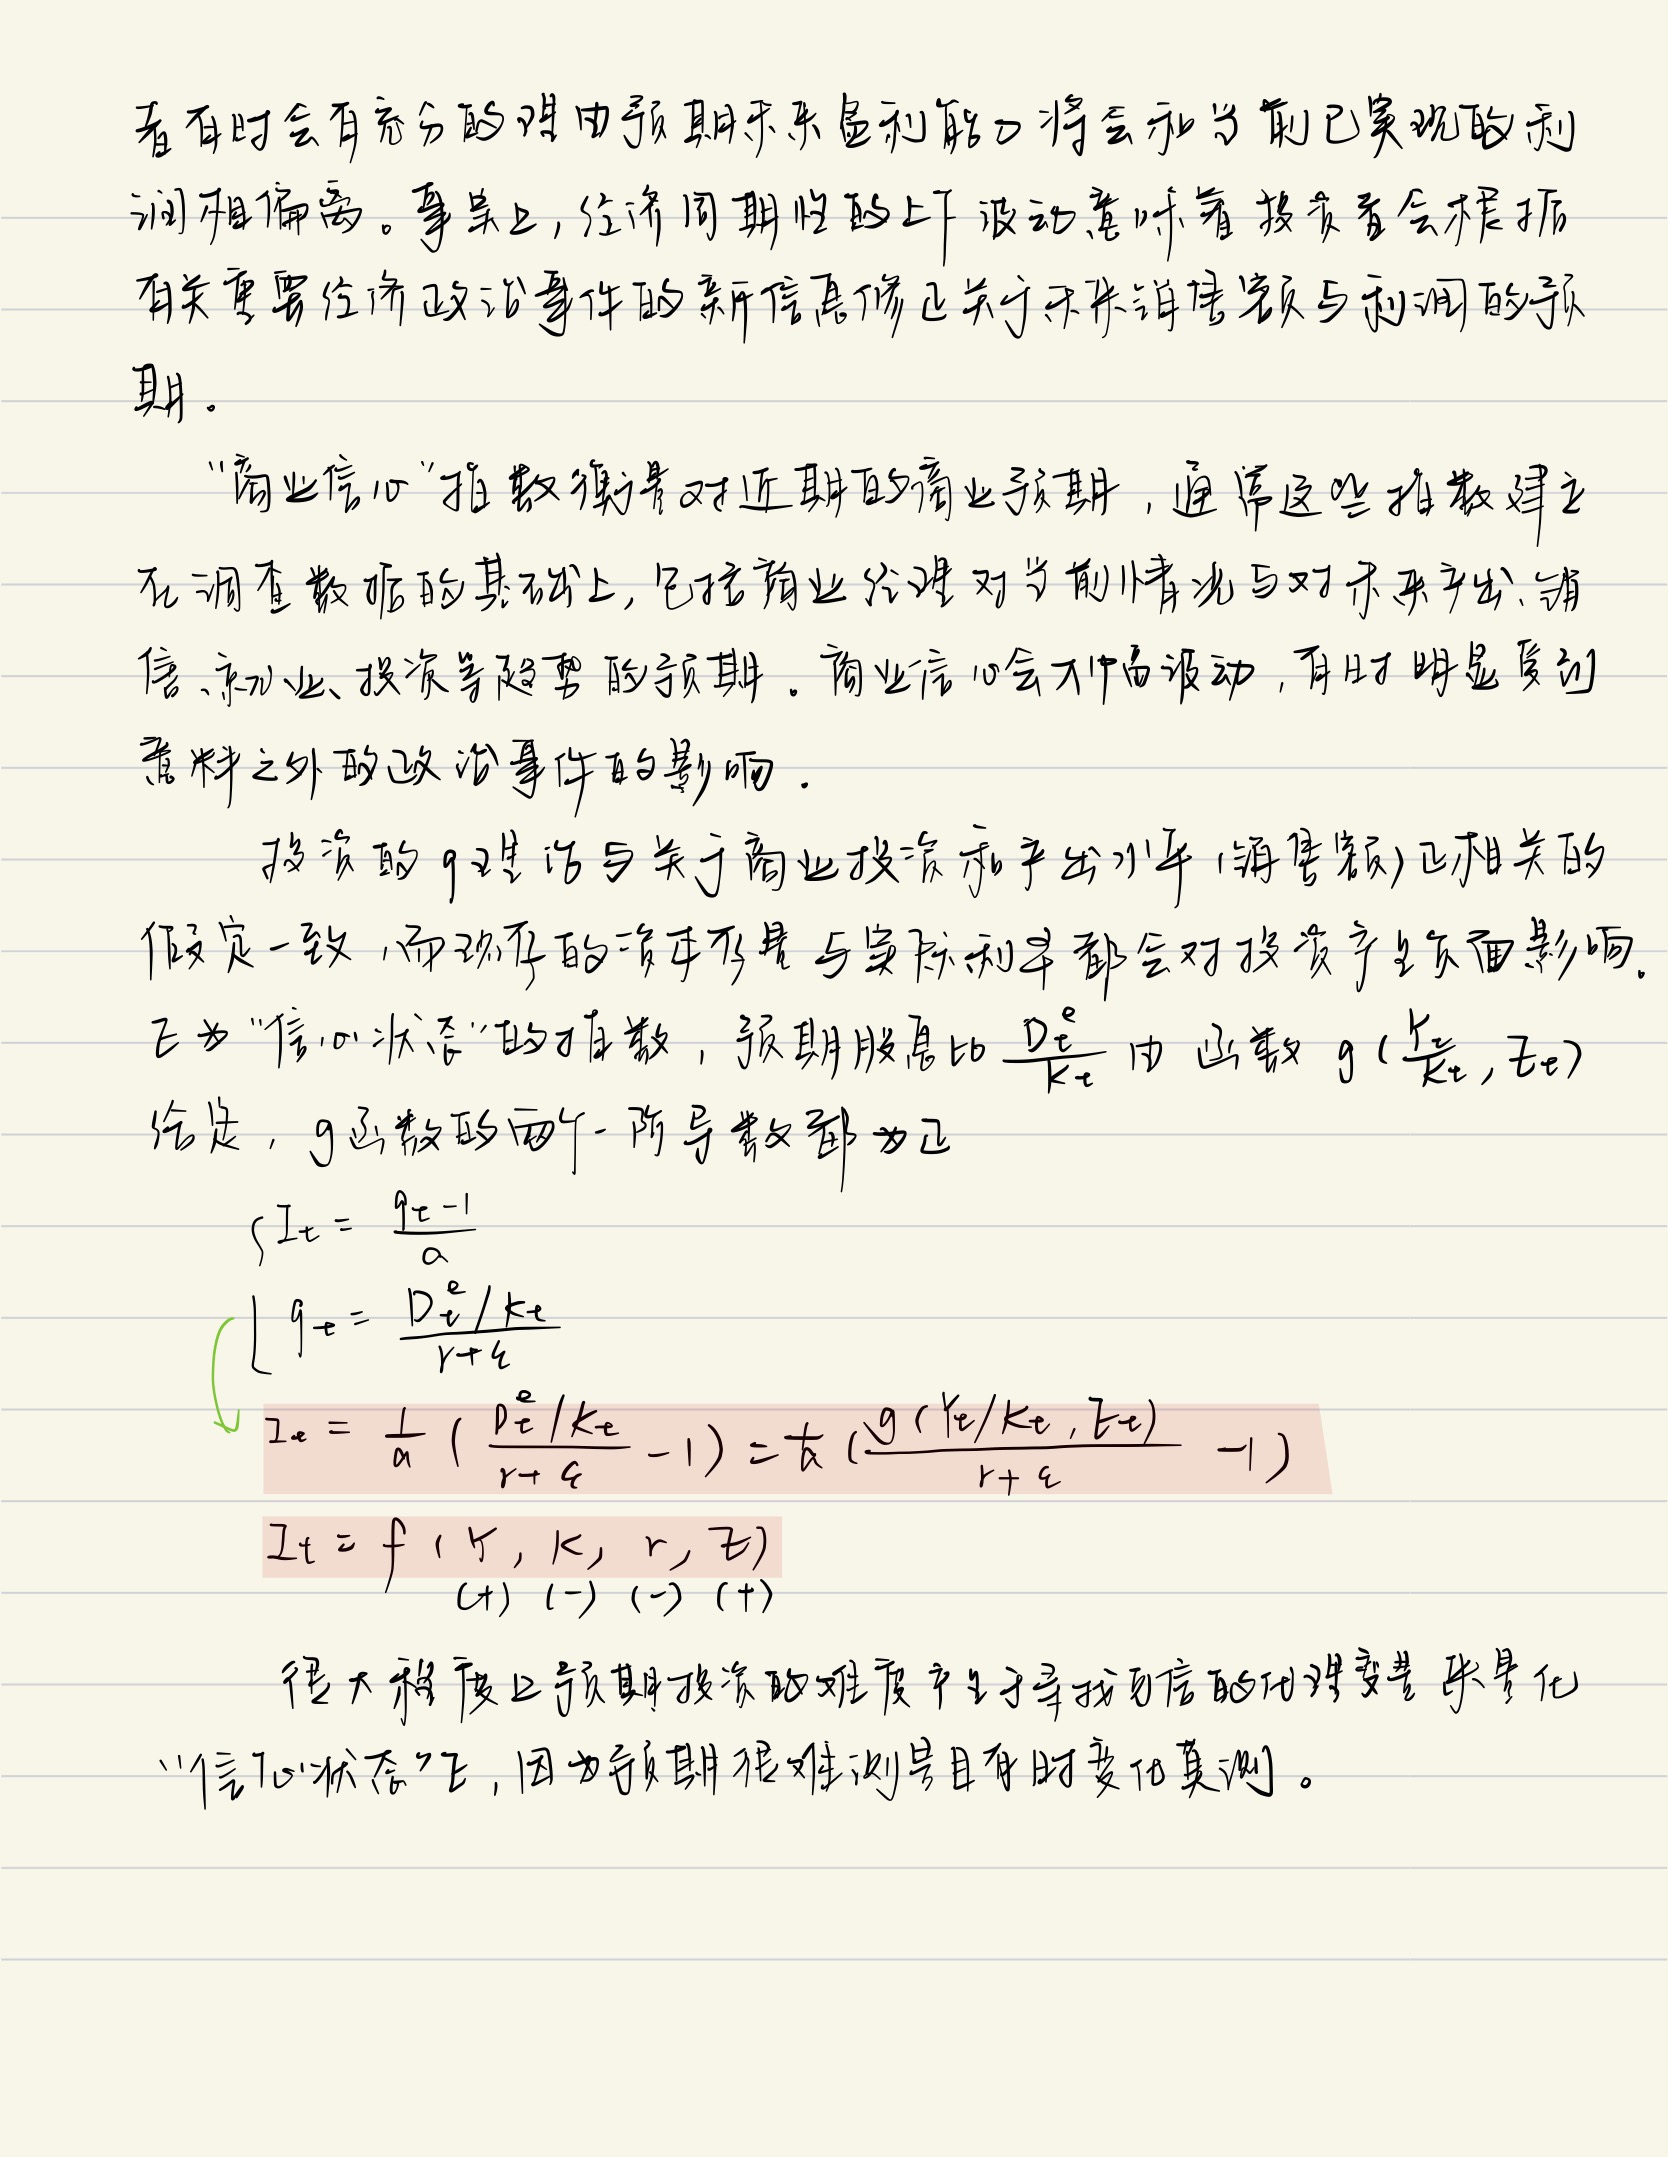 者有时会有充分的理由预期未来盈利能力将会和当前已实现的利
润相偏离。事实上，经济周期性的上下波动意味着投资者会根据
有关重要经济政治事件的新信息修正关于未来销售额与利润的预
期。
“商业信心”指数衡量对近期的商业预期，通常这些指数建立
在调查数据的基础上，包括商业经理对当前情况与对未来产出、销
售、就业、投资等趋势的预期。商业信心会大幅波动，有时明显受到
意料之外的政治事件的影响.
投资的q理论与关于商业投资和产出水平(销售额)正相关的
假定一致，而现存的资本存量与实际利率都会对投资产生负面影响.
E为“信心状态”的指数，预期股息比 D_t^e/K_t 由函数 g(Y_t/K_t, E_t)
给定，g函数的两个一阶导数都为正
I_t = (q_t-1)/a
q_t = (D_t^e/K_t)/(r+ε)
I_t = 1/a ( (D_t^e/K_t)/(r+ε) -1) = 1/a ( g(Y_t/K_t, E_t)/(r+ε) -1)
I_t = f(Y, K, r, E)
(+) (-) (-) (+)
很大程度上预期投资的难度产生于寻找可信的代理变量来量化
“信心状态”E，因为预期很难测量且有时变化莫测。